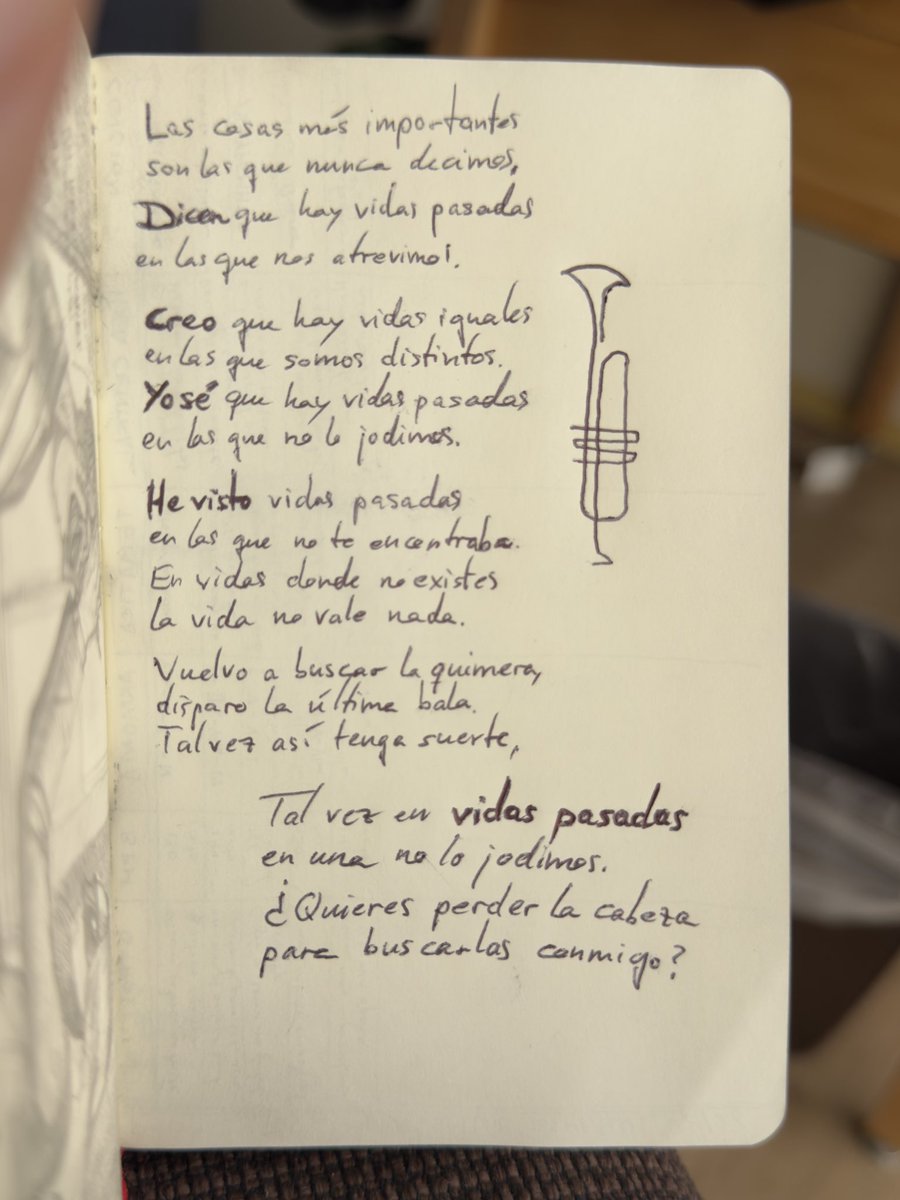 Las cosas más importantes
son las que nunca decimos.
Dicen que hay vidas pasadas
en las que nos atrevimos.
Creo que hay vidas iguales
en las que somos distintos.
Yo sé que hay vidas pasadas
en las que no lo jodimos.
He visto vidas pasadas
en las que no te encontraba.
En vidas donde no existes
la vida no vale nada.
Vuelvo a buscar la quimera,
disparo la última bala.
Tal vez así tenga suerte,
Tal vez en vidas pasadas
en una no lo jodimos.
¿Quieres perder la cabeza
para buscarlas conmigo?